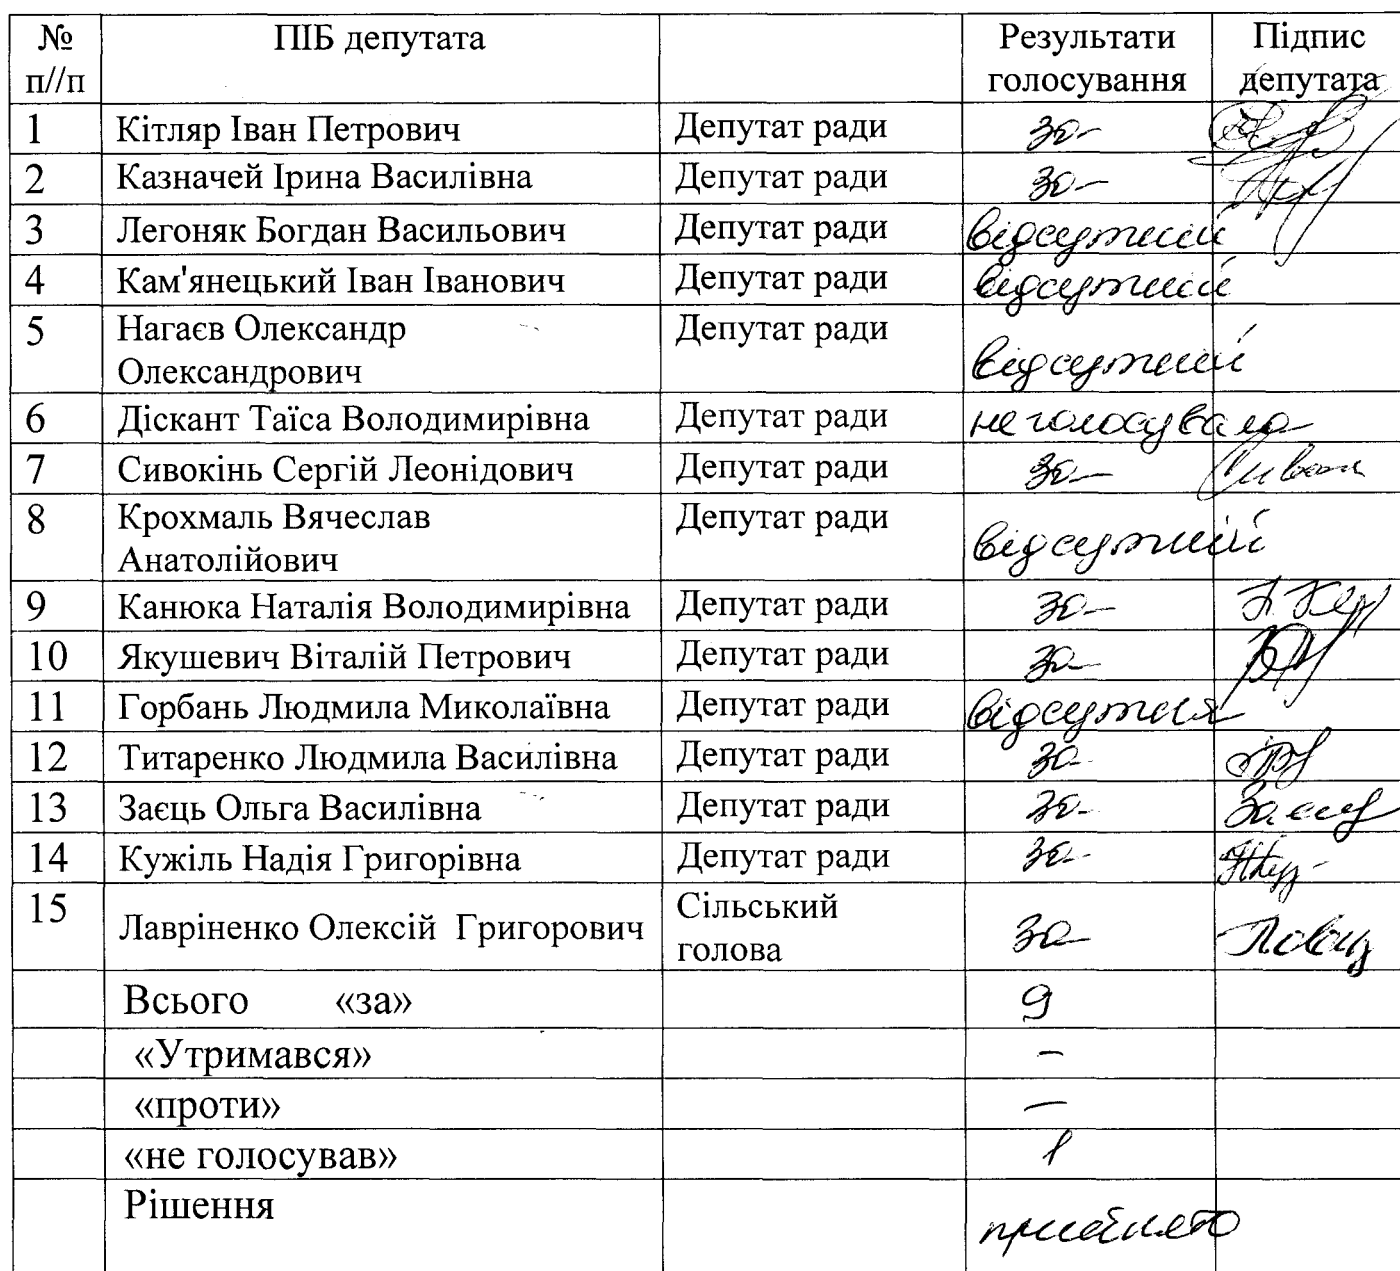 № п//п ПІБ депутата Результати голосування Підпис депутата
1 Кітляр Іван Петрович Депутат ради за
2 Казначей Ірина Василівна Депутат ради за
3 Легоняк Богдан Васильович Депутат ради відсутній
4 Кам'янецький Іван Іванович Депутат ради відсутній
5 Нагаєв Олександр Олександрович Депутат ради відсутній
6 Діскант Таїса Володимирівна Депутат ради не голосувала
7 Сивокінь Сергій Леонідович Депутат ради за
8 Крохмаль Вячеслав Анатолійович Депутат ради відсутній
9 Канюка Наталія Володимирівна Депутат ради за
10 Якушевич Віталій Петрович Депутат ради за
11 Горбань Людмила Миколаївна Депутат ради відсутня
12 Титаренко Людмила Василівна Депутат ради за
13 Заєць Ольга Василівна Депутат ради за
14 Кужіль Надія Григорівна Депутат ради за
15 Лавріненко Олексій Григорович Сільський голова за
Всього «за» 9
«Утримався» –
«проти» –
«не голосував» 1
Рішення прийнято